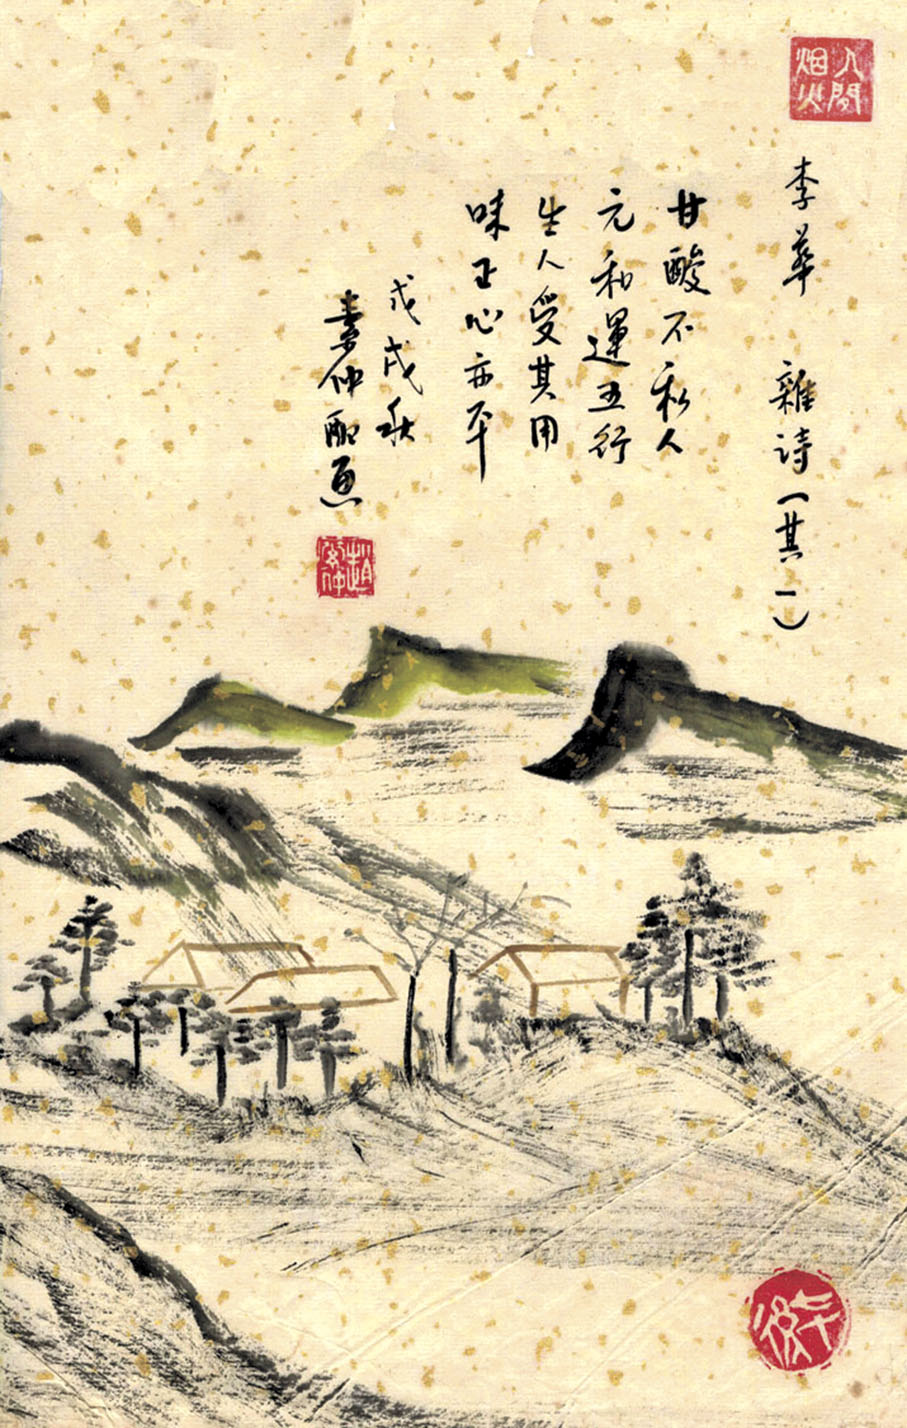 人間烟火
李華 雜诗（其一）
甘酸不私人
元和運五行
生人受其用
味正心亦平
戊戌秋
素仲配画
趙素仲